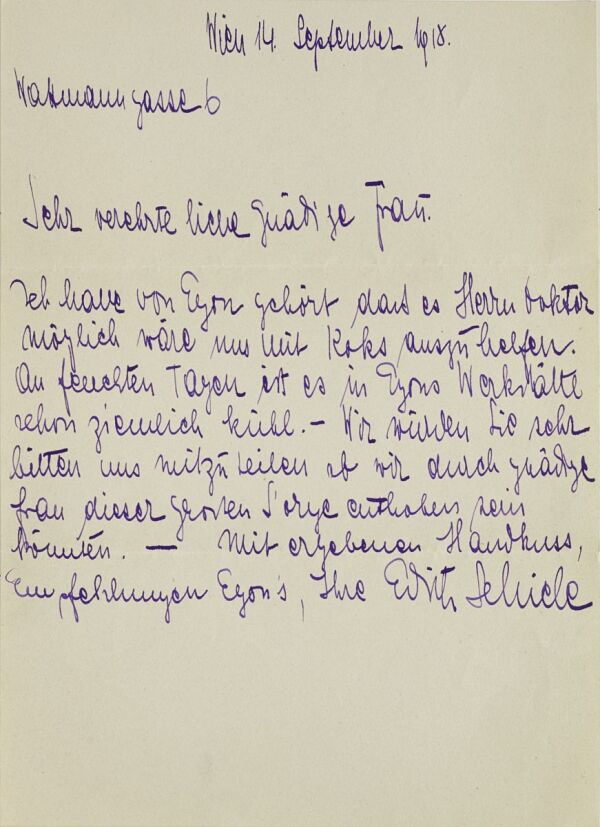 Wien 14. September 1918.
Wattmanngasse 6
Sehr verehrte liebe gnädige Frau.
Ich habe von Egon gehört dass es Herrn Doktor
möglich wäre uns mit Koks auszuhelfen.
An feuchten Tagen ist es in Egons Werkstätte
schon ziemlich kühl. – Wir würden Sie sehr
bitten uns mitzuteilen ob wir durch gnädige
Frau dieser grossen Sorge enthoben sein
könnten. — Mit ergebenen Handkuss,
Empfehlungen Egon's, Ihre Edith Schiele